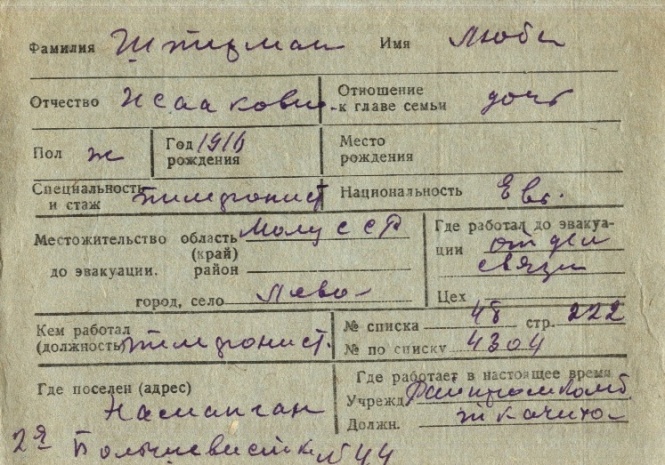 Фамилия Штирман Имя Люба
Отчество Исааковн. Отношение к главе семьи дочь
Пол ж Год рождения 1916 Место рождения
Специальность и стаж телефонист Национальность Евр.
Местожительство до эвакуации. область (край) Молд ССР
район
город, село
Где работал до эвакуации отдел связи
Цех
Кем работал (должность) телефонист. № списка 48 стр. 222
№ по списку 4304
Где поселен (адрес) Наманган
2я Большевистск № 44
Где работает в настоящее время
Учрежд. Райпромкомб
Должн. ткачиха